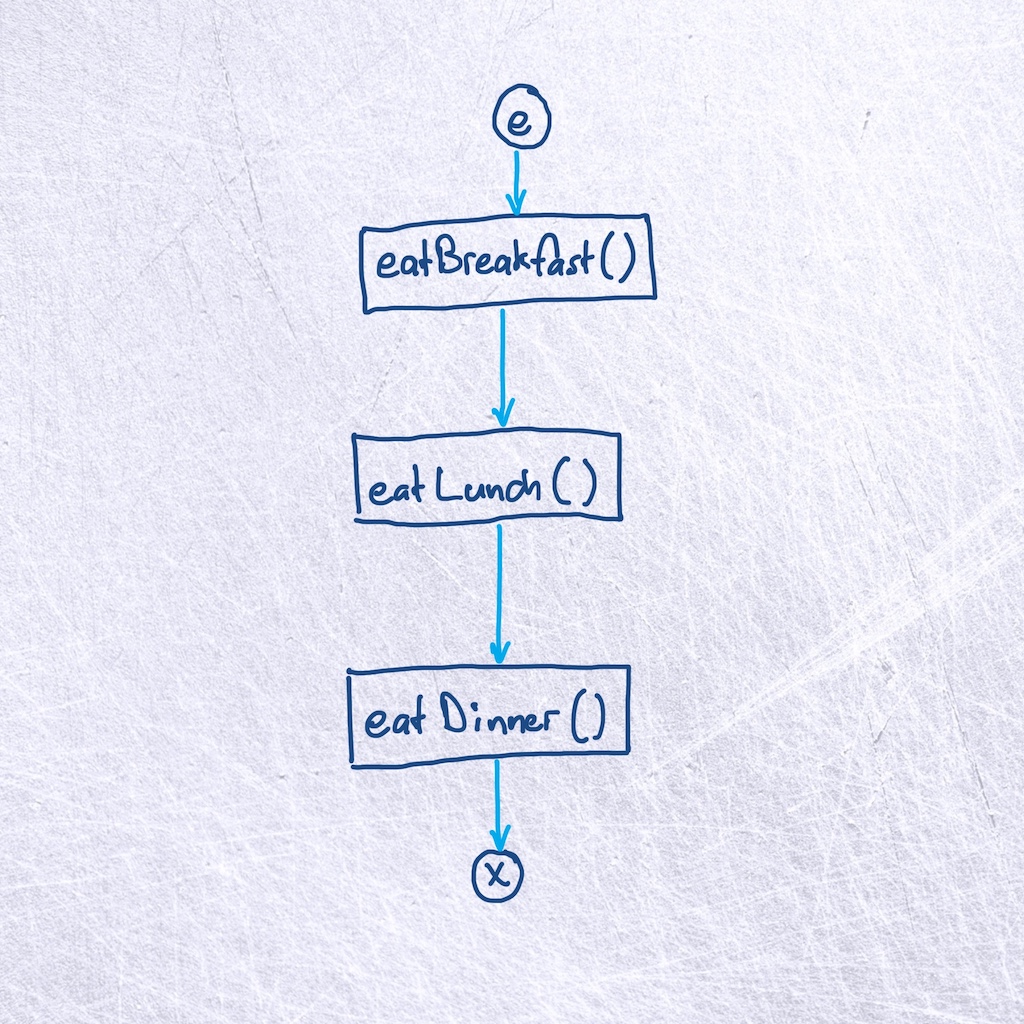 e
eatBreakfast()
eatLunch()
eatDinner()
x